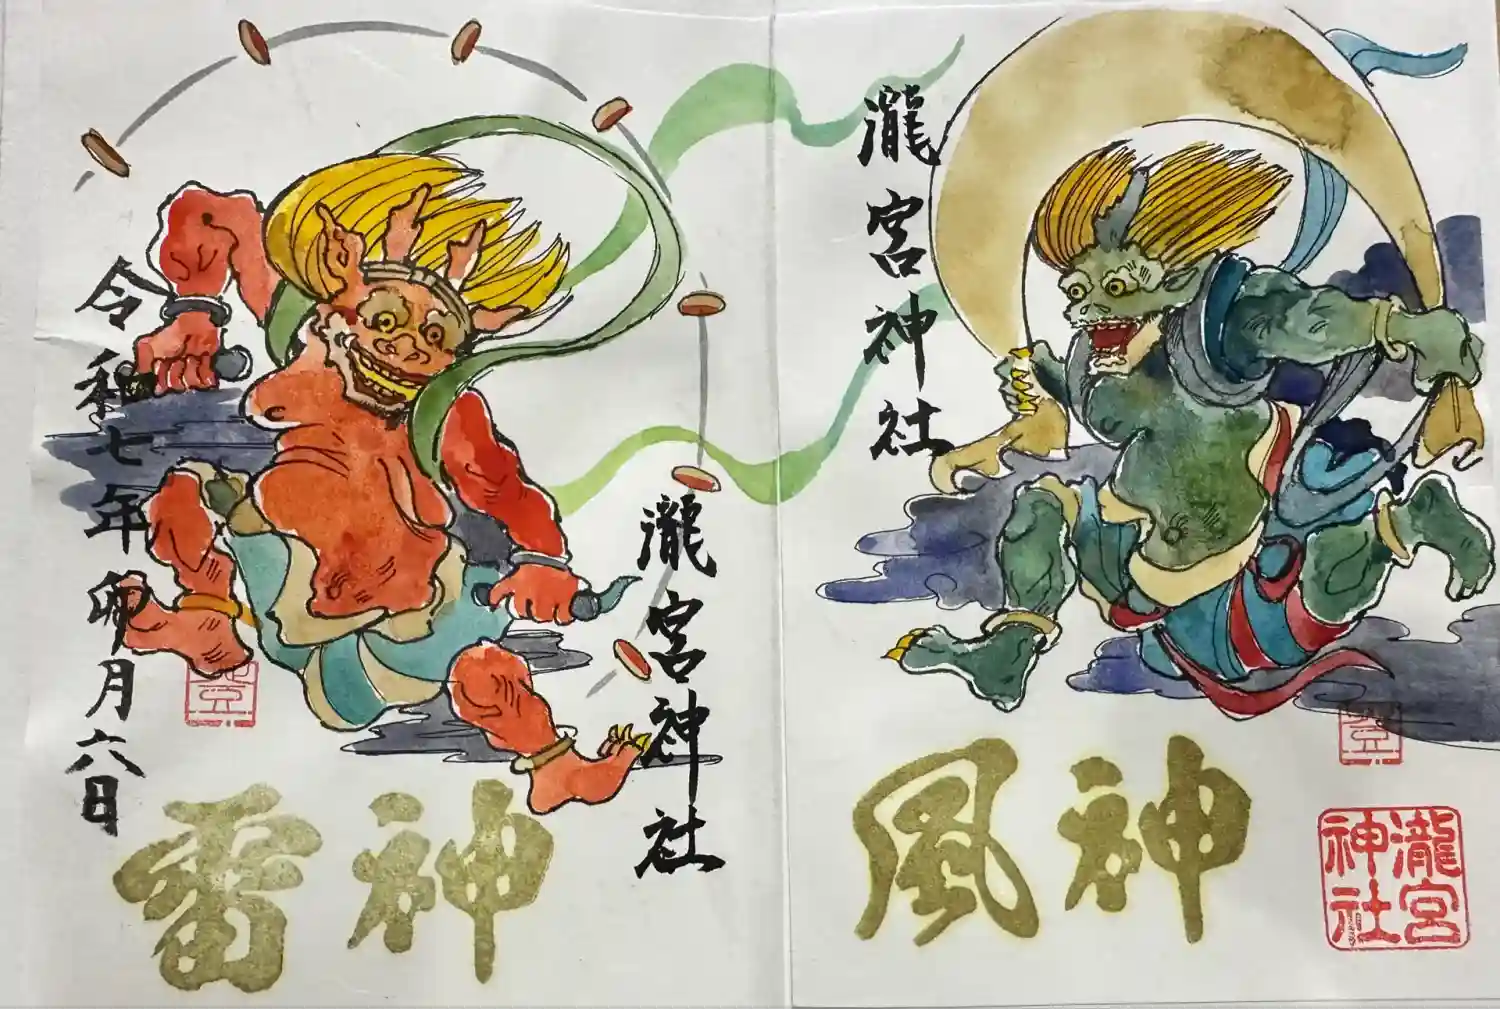 瀧宮神社
風神
瀧宮
神社
瀧宮神社
雷神
令和七年卯月六日